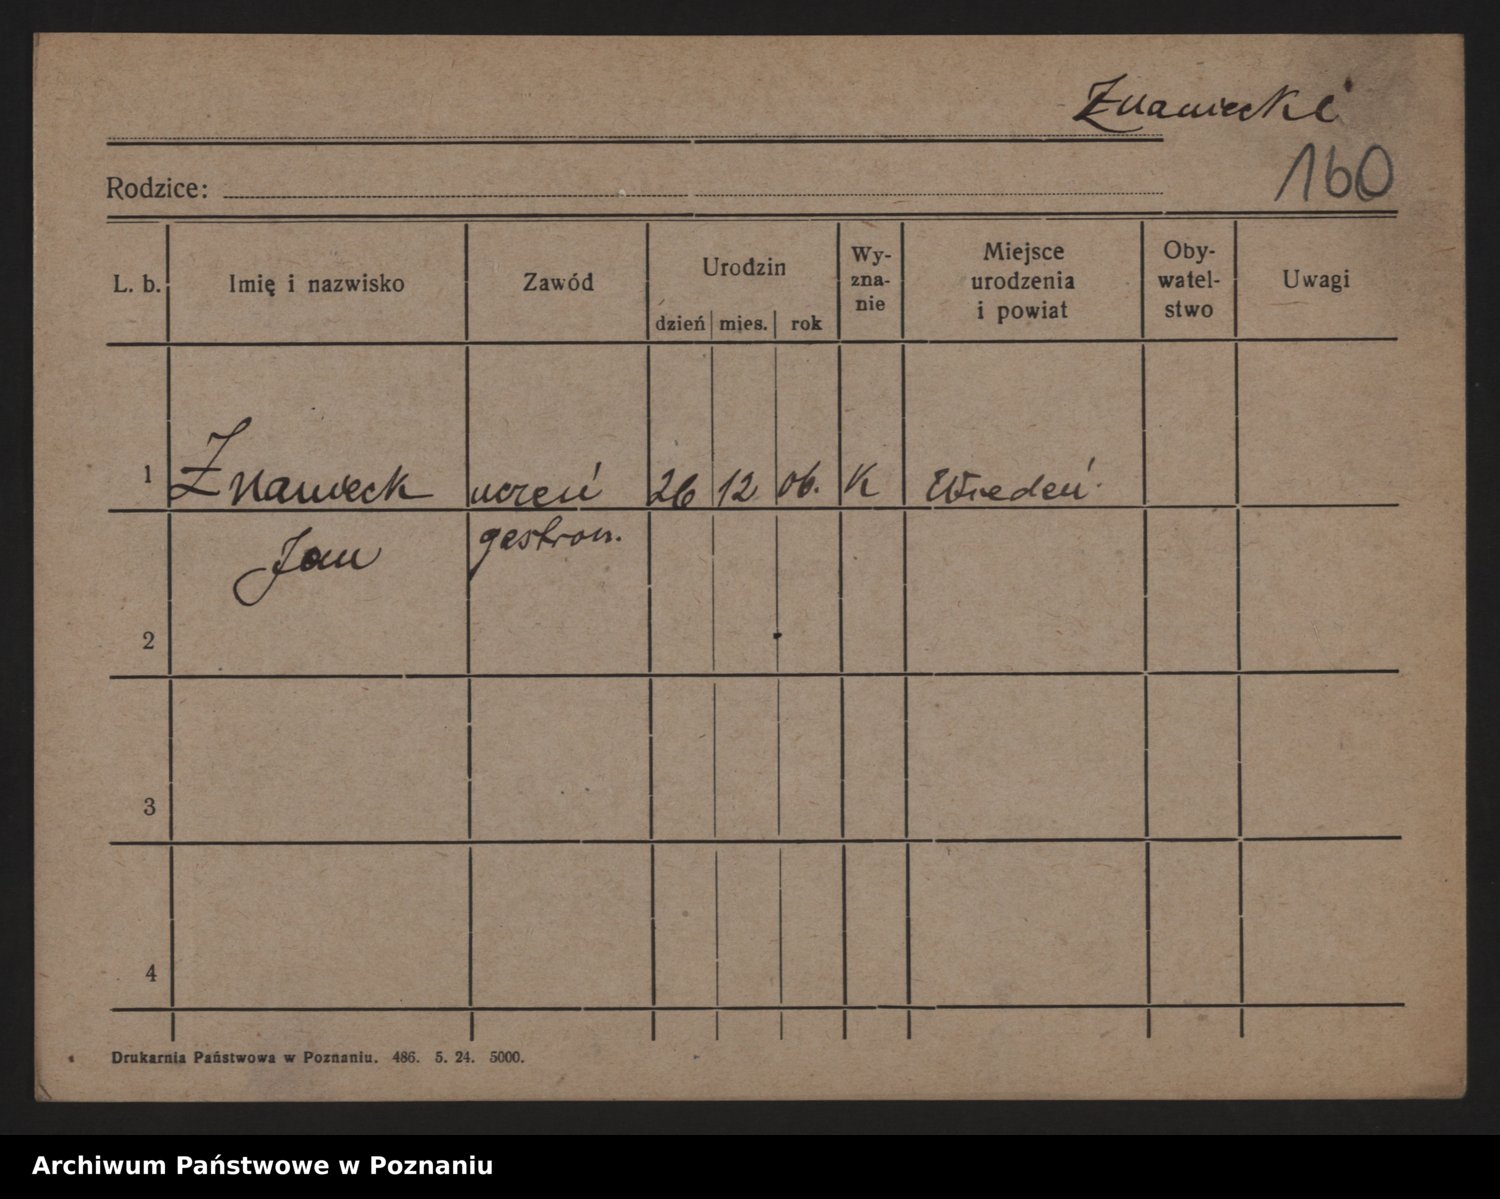 Znaniecki
160
Rodzice:
L. b. Imię i nazwisko Zawód Urodzin dzień mies. rok Wy-zna-nie Miejsce urodzenia i powiat Oby-watel-stwo Uwagi
1 Znanieck uczeń 26 12 06. K Wiedeń
Jan gastron.
2
3
4
Drukarnia Państwowa w Poznaniu. 486. 5. 24. 5000.
Archiwum Państwowe w Poznaniu